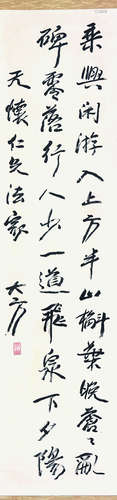 乘興閑游入上方半山斜葉晚蒼々亂
碑零落行人少一道飛泉下夕陽
天懷仁兄法家
大方